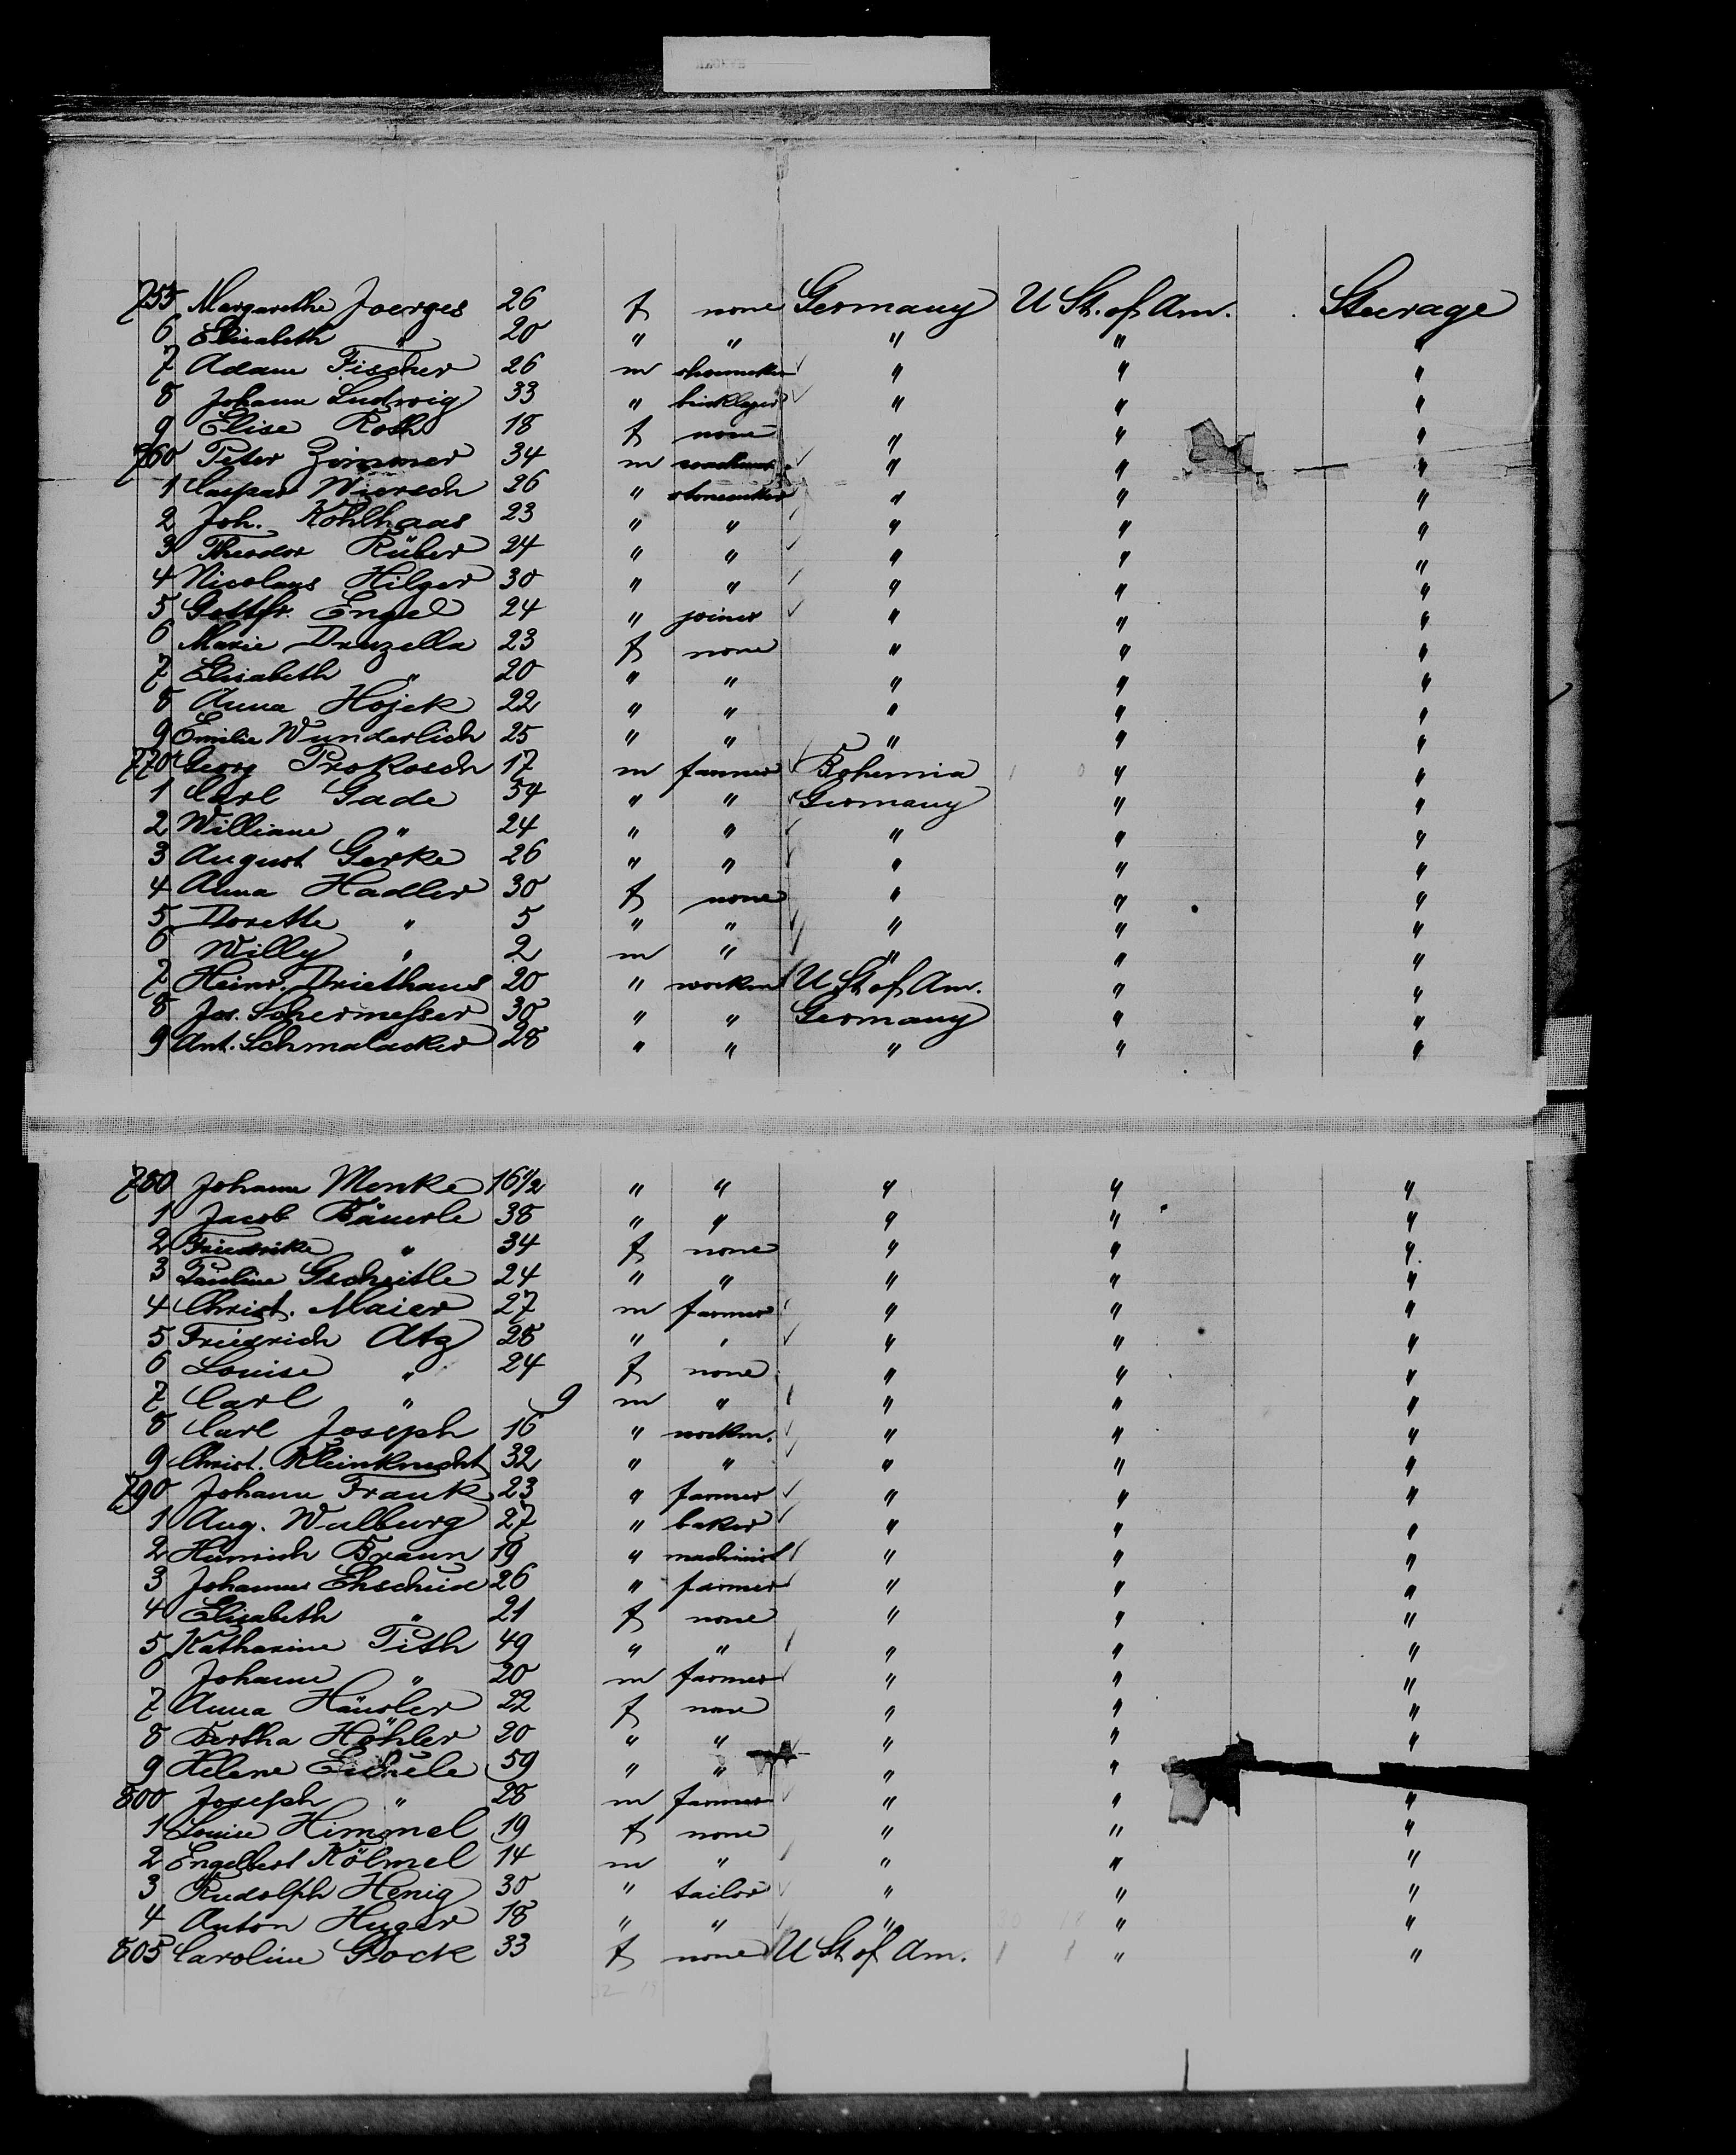 755 Margarethe Joerges 26 f none Germany U St. of Am. Steerage
6 Elisabeth " 20 " " " " "
7 Adam Fischer 26 m shoemaker " " "
8 Johann Ludwig 33 " bricklayer " " "
9 Elise Roth 18 f none " " "
760 Peter Zimmer 34 m " " "
1 Caspar Wiersch 26 " stonecutter " " "
2 Joh. Kohlhaas 23 " " " " "
3 Theodor Rüber 24 " " " " "
4 Nicolaus Hilger 30 " " " " "
5 Gottfr. Engel 24 " joiner " " "
6 Marie Druzella 23 f none " " "
7 Elisabeth " 20 " " " " "
8 Anna Hojek 22 " " " " "
9 Emilie Wunderlich 25 " " " " "
770 Georg Prokosch 17 m farmer Bohemia " "
1 Carl Gade 54 " " Germany " "
2 William " 24 " " " " "
3 August Gerke 26 " " " " "
4 Anna Hadler 30 f none " " "
5 Dorette " 5 " " " " "
6 Willy " 2 m " " " "
7 Heinr. Driethaus 20 " workm U St of Am. " "
8 Jos. Schermesser 30 " " Germany " "
9 Ant. Schmalacker 28 " " " " "
780 Johann Menke 16 1/2 " " " " "
1 Jacob Bäuerle 38 " " " " "
2 Friedrike " 34 f none " " "
3 Pauline Gscheitle 24 " " " " "
4 Christ. Maier 27 m farmer " " "
5 Friedrich Atz 28 " " " " "
6 Louise " 24 f none " " "
7 Carl " 9 m " " " "
8 Carl Joseph 16 " workm. " " "
9 Christ. Kleinknecht 32 " " " " "
790 Johann Frank 23 " farmer " " "
1 Aug. Walburg 27 " baker " " "
2 Heinrich Braun 19 " machinist " " "
3 Johannes Ehscheid 26 " farmer " " "
4 Elisabeth " 21 f none " " "
5 Katharine Pith 49 " " " " "
6 Johann " 20 m farmer " " "
7 Anna Häusler 22 f none " " "
8 Bertha Höhler 20 " " " " "
9 Helene Eichele 59 " " " " "
800 Joseph " 28 m farmer " " "
1 Louise Himmel 19 f none " " "
2 Engelbert Kölmel 14 m " " " "
3 Rudolph Henig 30 " tailor " " "
4 Anton Huger 18 " " " " "
805 Caroline Glock 33 f none U St of Am. " "